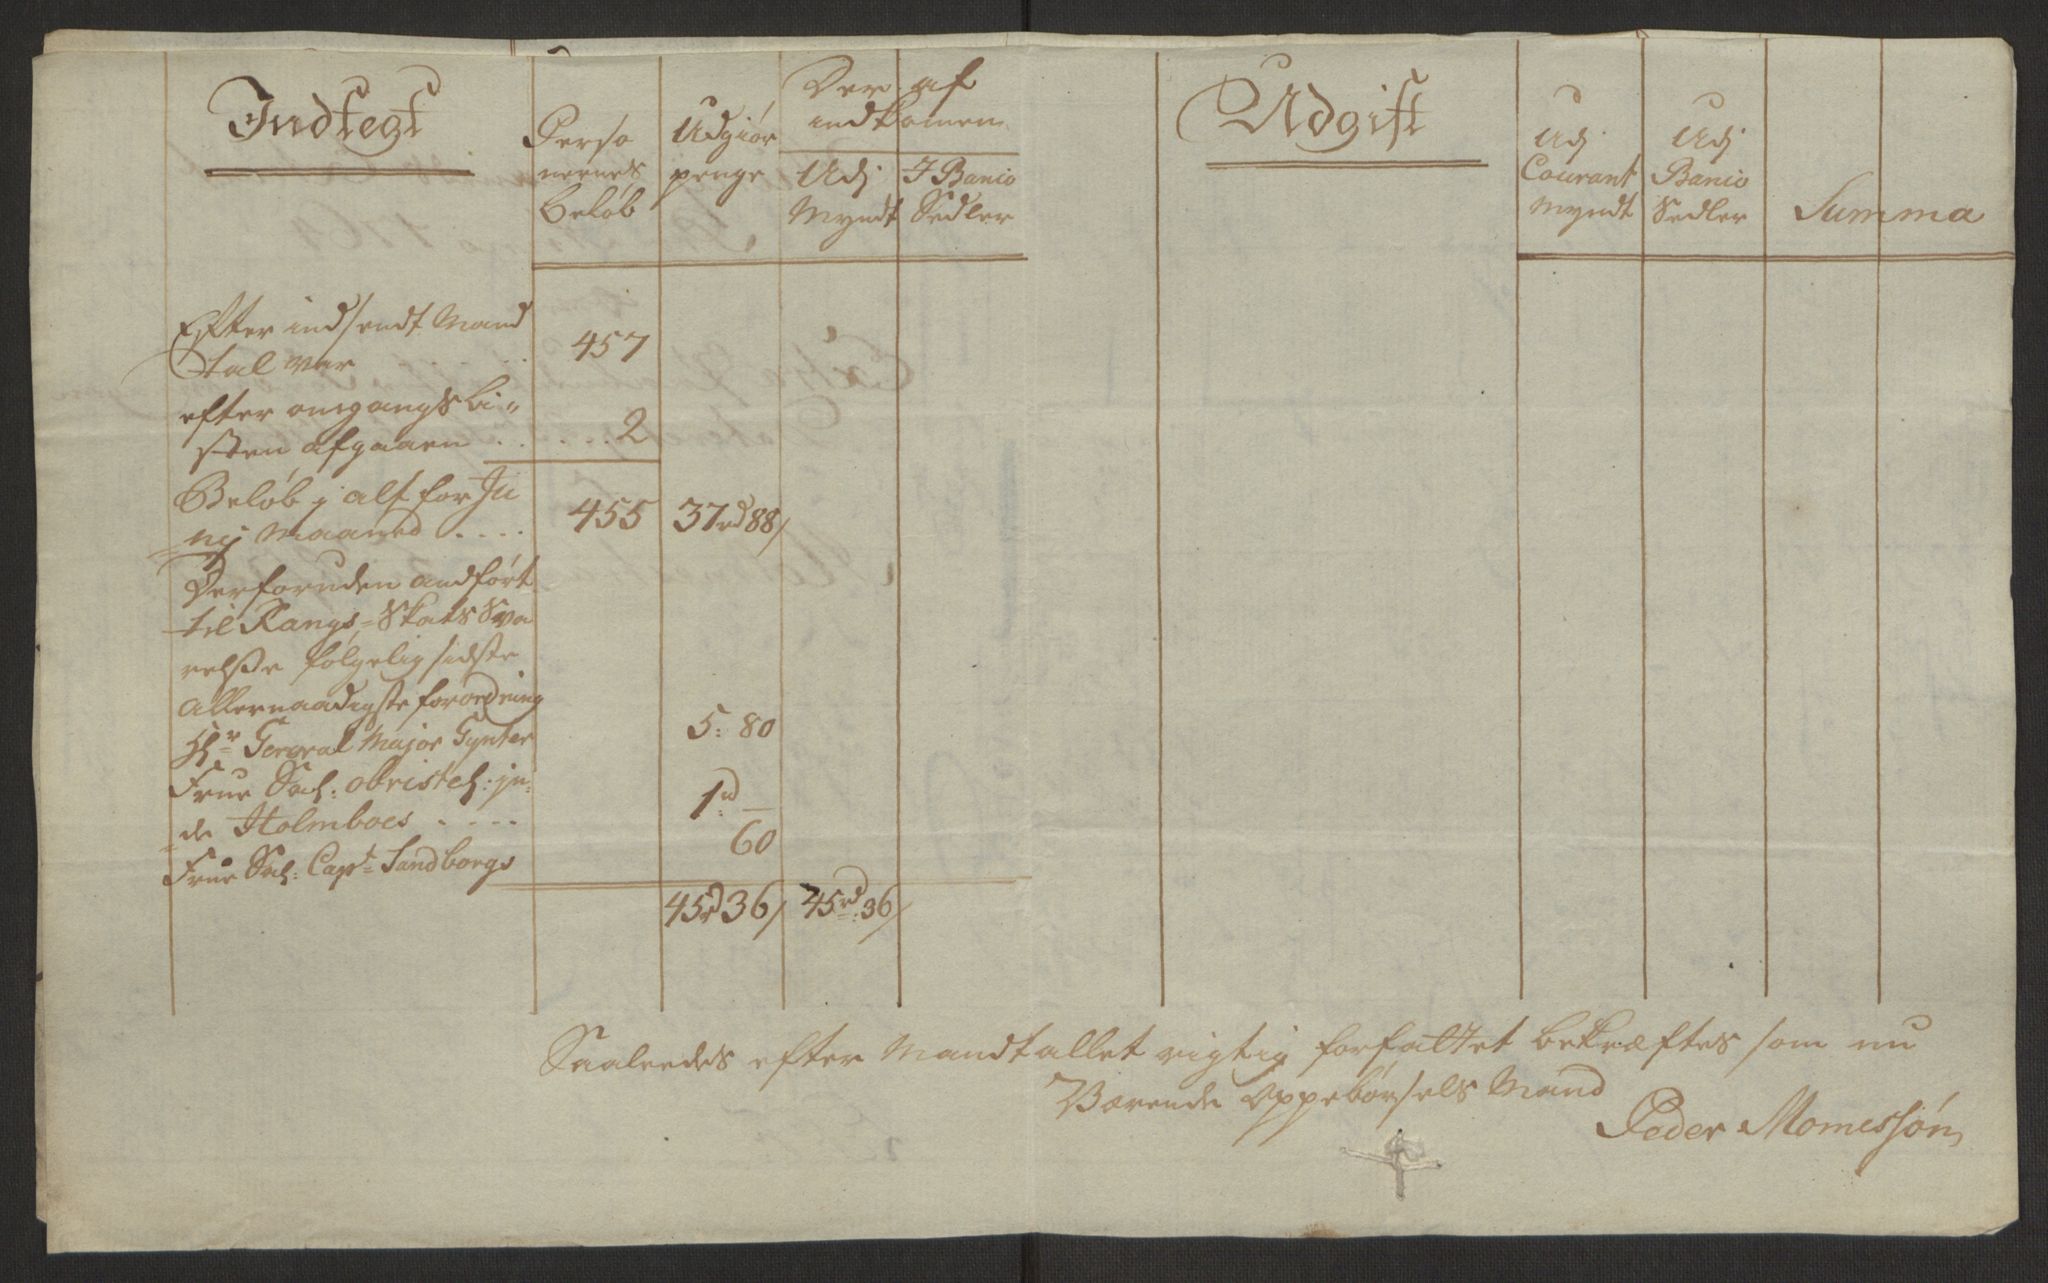 Indtegt
Perso
nernes
beløb
Udgiør
penge
Der af
indkomen
Udj
Myndt
I Banco
Sedler
Udgift
Udj
Courant
Myndt
Udj
Banco
Sedler
Summa
Efter indsendt Mand
tal var . . . 457
efter omgangs Li„
sten afgaaen . . . . . 2
Beløb j alt for Ju
nij Maaned . . . . 455 37rd 88/
Derforuden andført
til Rangs=Skats Sva
relsse følgelig sidste
allernaadigste forordning
Hr General Major Gynter 5: 80
Frue Sal: obristel: in„
de Holmboes . . . . 1rd —
Frue Sal: Capt Sandborgs 60
45rd 36/ 45rd: 36/
Saaleedes efter Mandtallet rigtig forfattet bekræftes som nu
Værende Oppebørsels Mand
Peder Momessøn